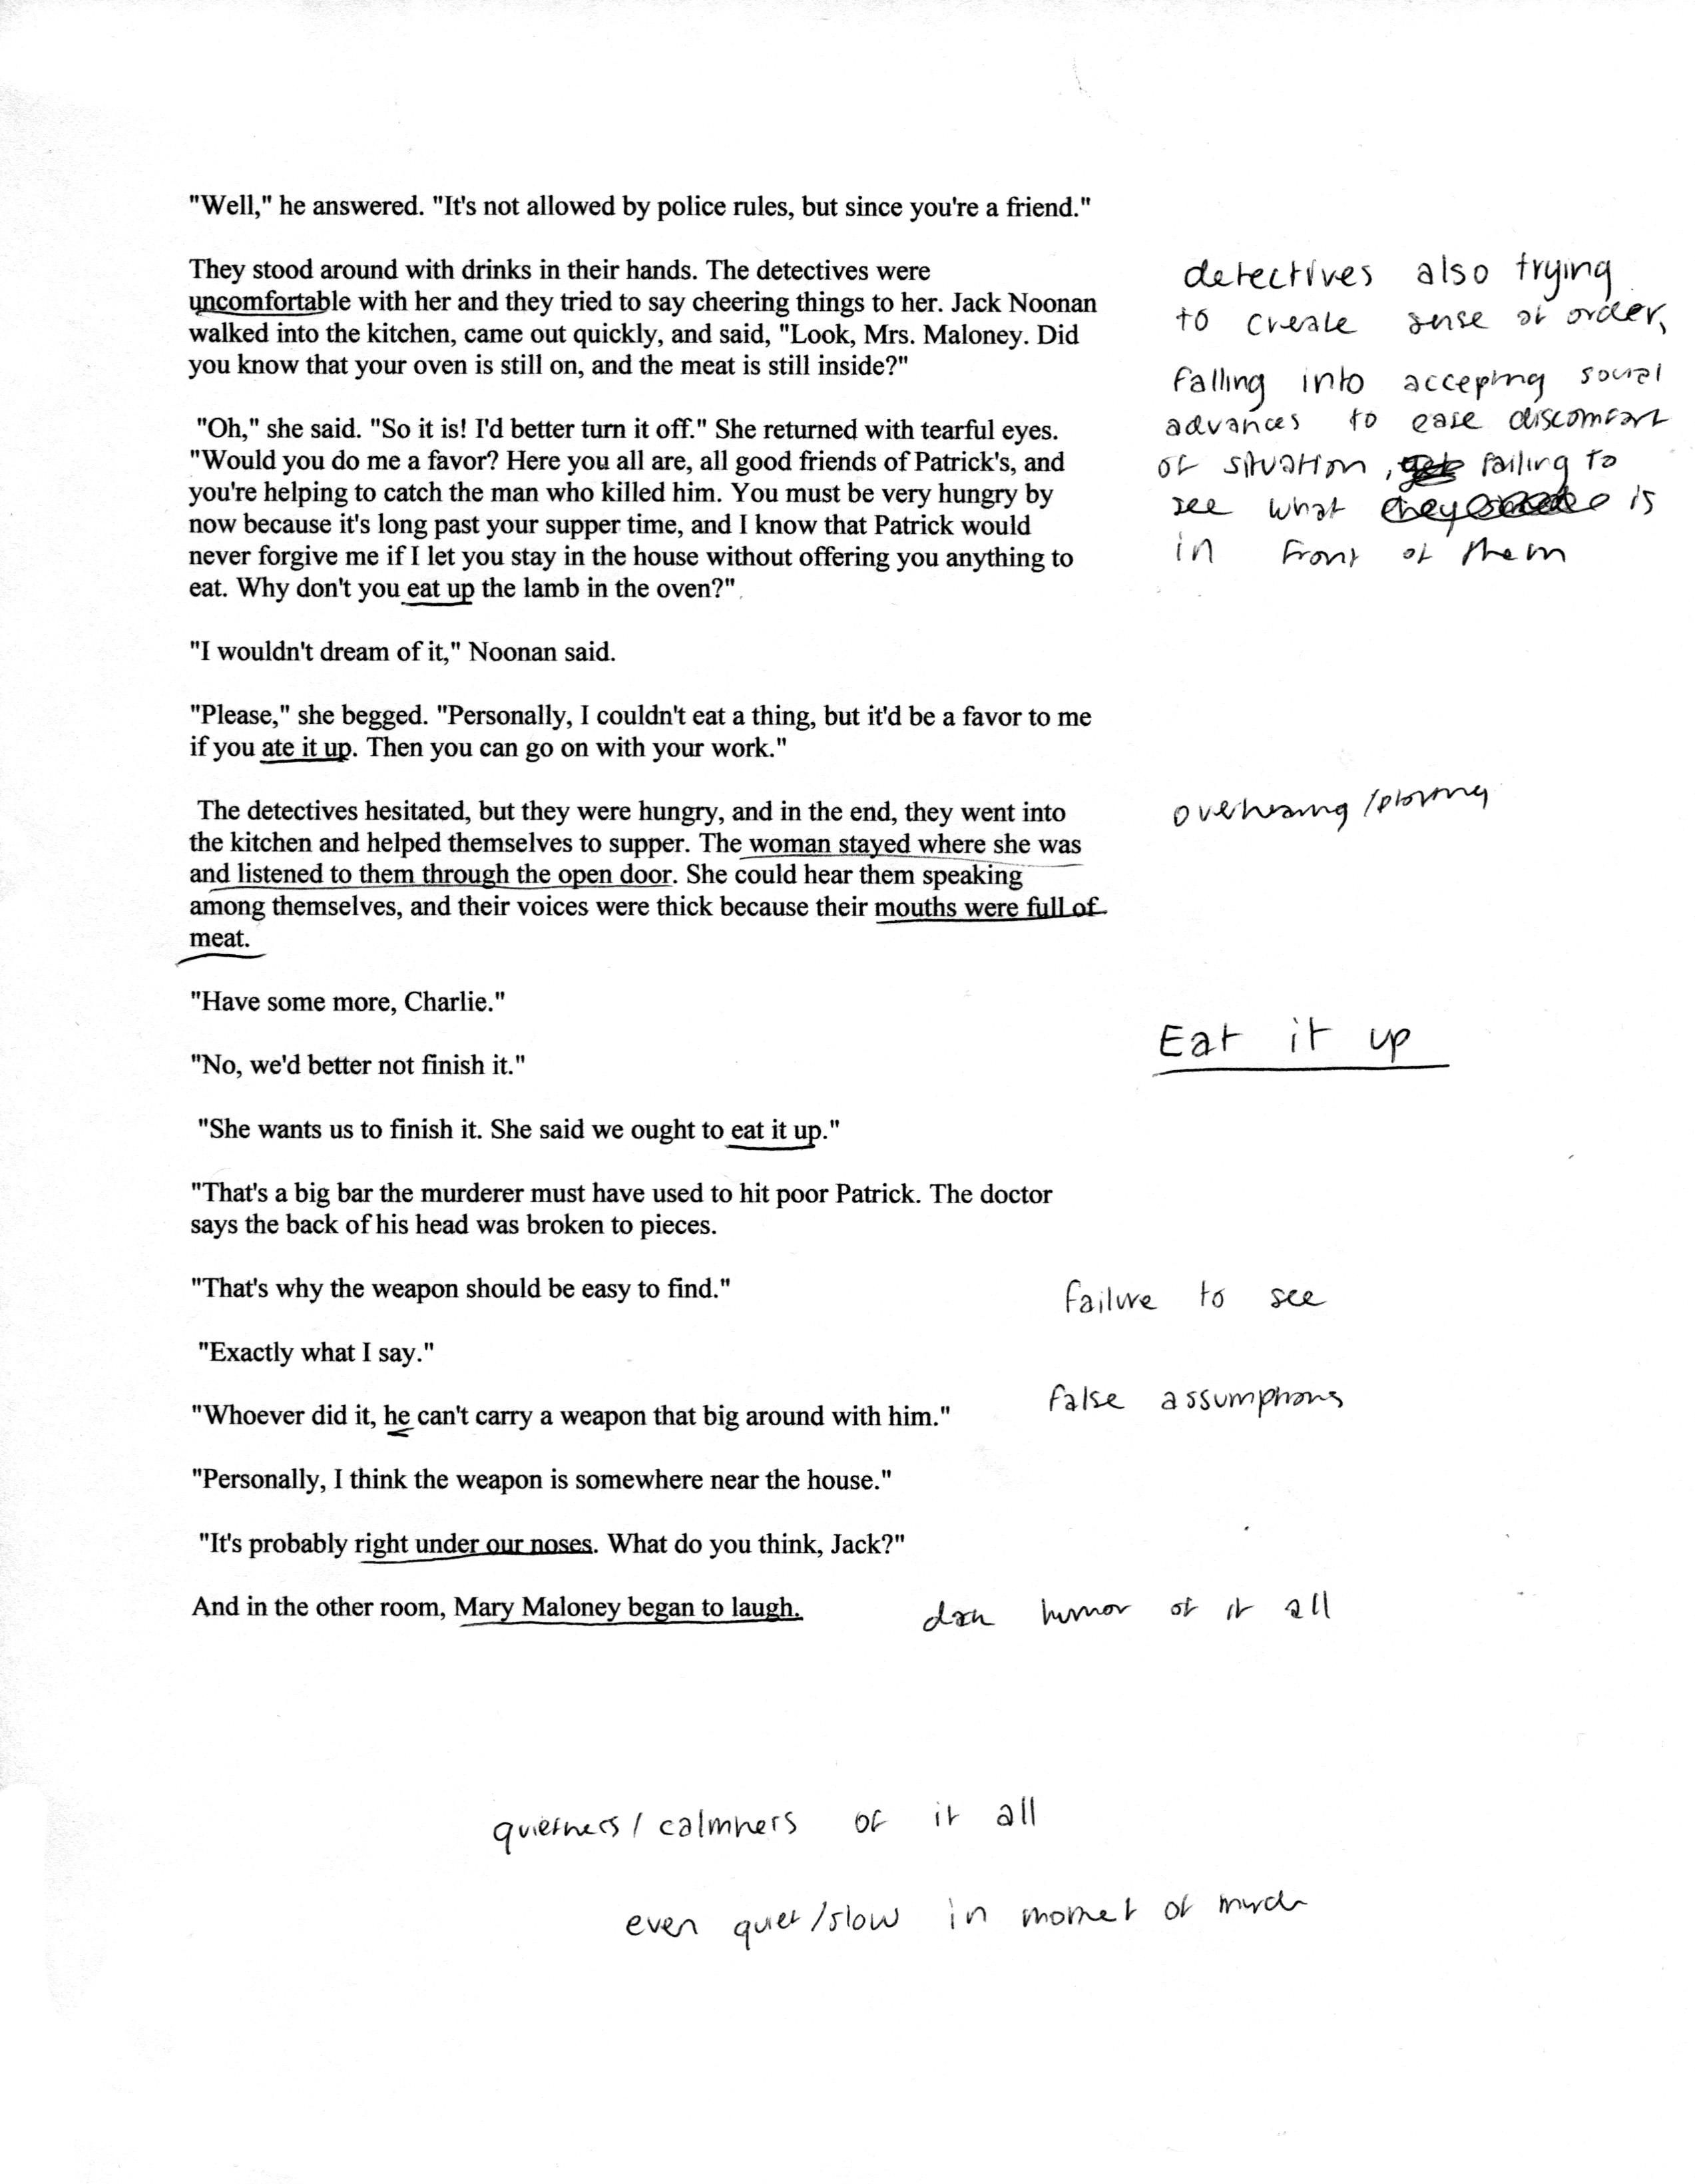 "Well," he answered. "It's not allowed by police rules, but since you're a friend."
They stood around with drinks in their hands. The detectives were
uncomfortable with her and they tried to say cheering things to her. Jack Noonan
walked into the kitchen, came out quickly, and said, "Look, Mrs. Maloney. Did
you know that your oven is still on, and the meat is still inside?"
detectives also trying
to create sense of order,
falling into accepting social
advances to ease discomfort
of situation, failing to
see what is
in front of them
"Oh," she said. "So it is! I'd better turn it off." She returned with tearful eyes.
"Would you do me a favor? Here you all are, all good friends of Patrick's, and
you're helping to catch the man who killed him. You must be very hungry by
now because it's long past your supper time, and I know that Patrick would
never forgive me if I let you stay in the house without offering you anything to
eat. Why don't you eat up the lamb in the oven?"
"I wouldn't dream of it," Noonan said.
"Please," she begged. "Personally, I couldn't eat a thing, but it'd be a favor to me
if you ate it up. Then you can go on with your work."
The detectives hesitated, but they were hungry, and in the end, they went into
the kitchen and helped themselves to supper. The woman stayed where she was
and listened to them through the open door. She could hear them speaking
among themselves, and their voices were thick because their mouths were full of
meat.
overhearing /
"Have some more, Charlie."
Eat it up
"No, we'd better not finish it."
"She wants us to finish it. She said we ought to eat it up."
"That's a big bar the murderer must have used to hit poor Patrick. The doctor
says the back of his head was broken to pieces.
"That's why the weapon should be easy to find."
failure to see
"Exactly what I say."
"Whoever did it, he can't carry a weapon that big around with him."
false assumptions
"Personally, I think the weapon is somewhere near the house."
"It's probably right under our noses. What do you think, Jack?"
And in the other room, Mary Maloney began to laugh.
dark humor of it all
quietness/calmness of it all
even quiet/slow in moment of murder